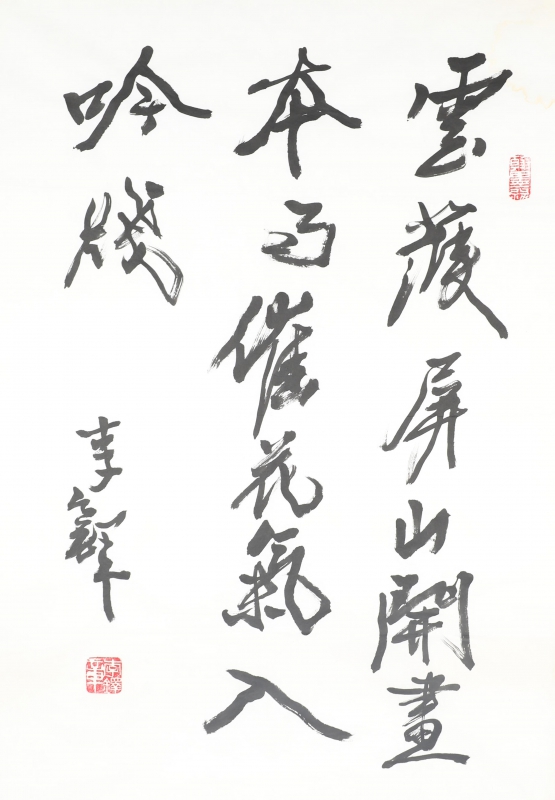 雲護屏山開畫
本雨催花氣入
吟牋
李鐸